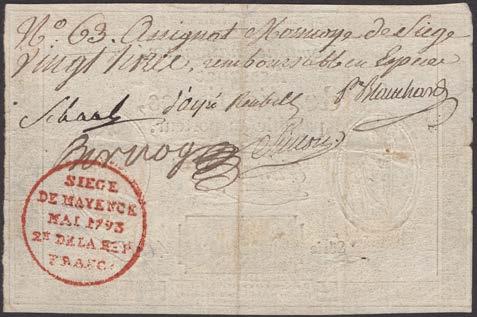 No. 63. Assignat Monnoye de Siege
vingt livres, remboursable en Especes
Schaal d'oyré Reubell Pr Blanchard
SIEGE
DE MAYENCE
MAI 1793
2E DE LA REP
FRANC.